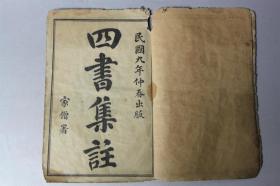 民國九年仲春出版
四書集註